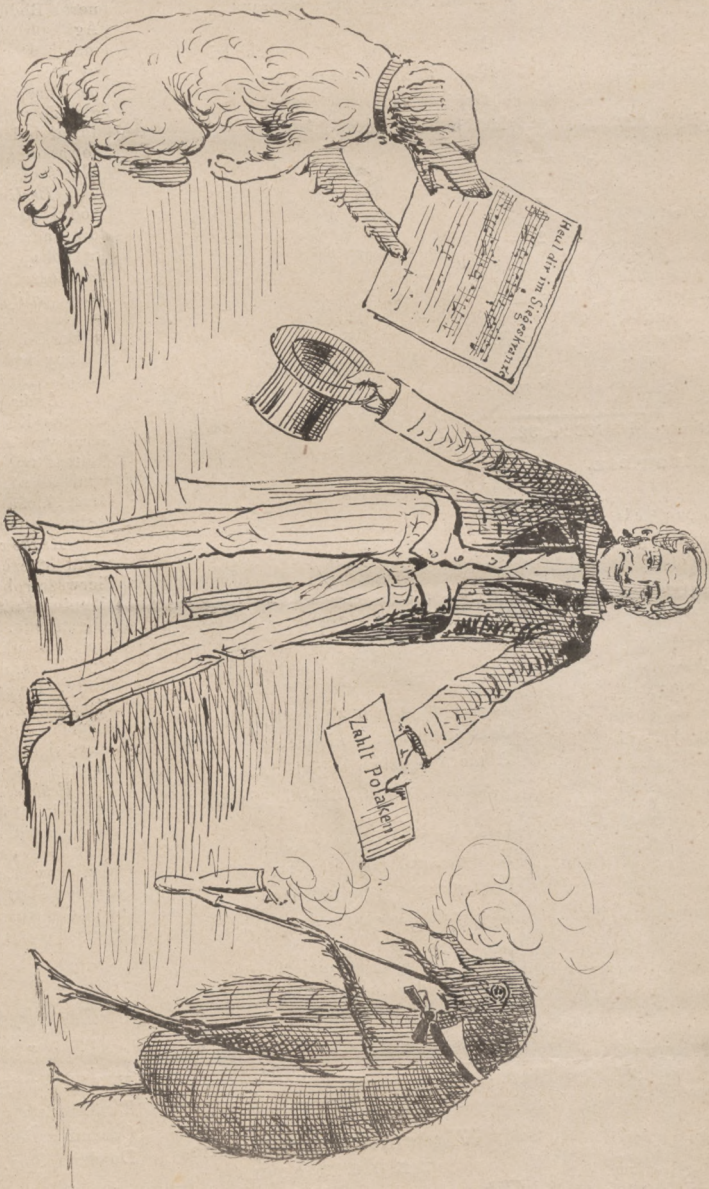 Heul dir im Siegeskranz
Zahlt Polaken